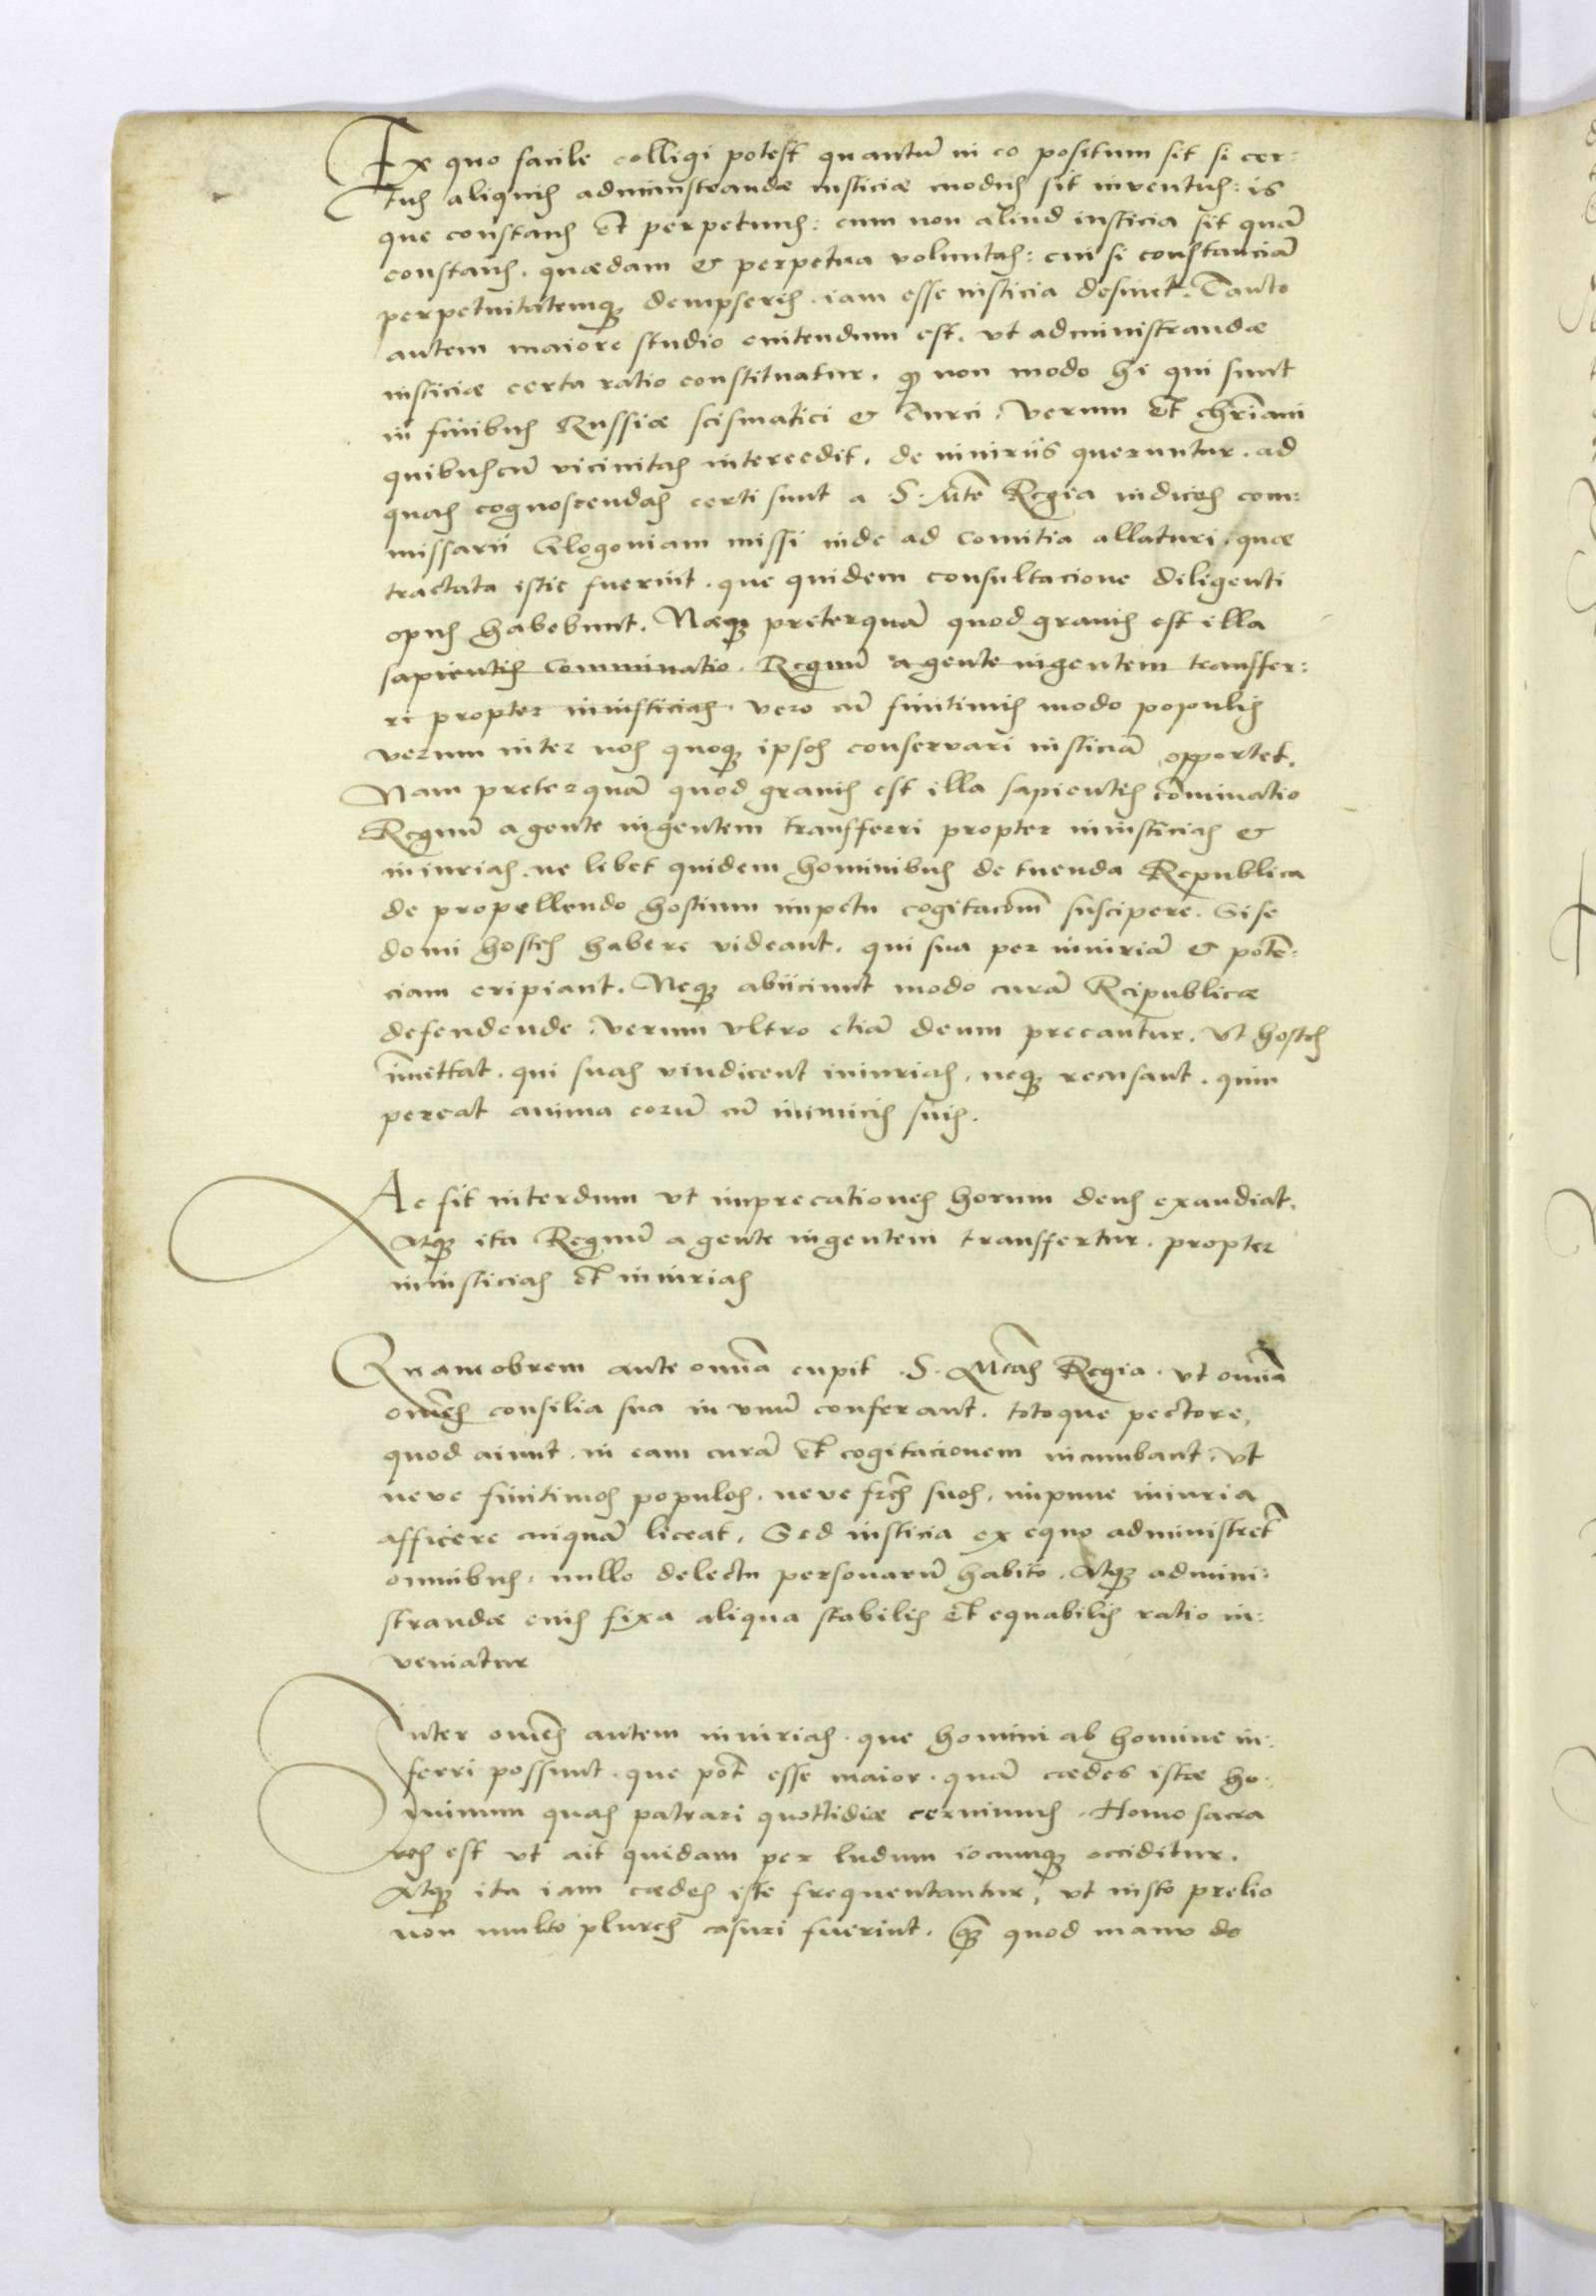 Ex quo facile colligi potest quantũ in eo positum sit si cer:
tus aliquis administrandæ iusticiæ modus sit inventus: is
que constans et perpetuus: cum non aliud iusticia sit quã
constans. quædam & perpetua voluntas: cui si constanciã
perpetuitatemq̃ dempseris. iam esse iusticia desinet. Tanto
autem maiore studio enitendum est. vt administrandæ
iusticiæ certa ratio constituatur. q̃ non modo hi qui sunt
in finibus Russiæ scismatici & Turci, verum et chr̃iani
quibuscũ vicinitas intercedit. de iniuriis queruntur. ad
quas cognoscendas certi sunt a S. Mte Regia iudices com:
missarii Glogoviam missi inde ad comitia allaturi, quæ
tractata istic fuerint. que quidem consultacione diligenti
opus habebunt. Neq̃ preterquã quod gravis est illa
sapientis comminatio. Regnũ a gente in gentem transfer:
ri propter iniusticias. vero cũ finitimis modo populis
verum inter nos quoq̃ ipsos conservari iusticiã opportet.
Nam preterquã quod gravis est illa sapientis cõminatio
Regnũ a gente in gentem transferri propter iniusticias &
iniurias. ne libet quidem hominibus de tuenda Republica
de propellendo hostium impetu cogitacõm suscipere. Si se
domi hostes habere videant. qui sua per iniuriã & potẽ:
ciam eripiant. Neq̃ abiiciunt modo curã Reipublicæ
defendende. verum vltro etiã deum precantur. vt hostes
ĩmittat. qui suas vindicent iniurias, neq̃ recusant. quin
pereat anima eorũ cũ inimicis suis.
Ac fit interdum vt imprecationes horum deus exaudiat.
Atq̃ ita Regnũ a gente in gentem transfertur. propter
iniusticias et iniurias
Quamobrem ante omnĩa cupit .S. Mtas Regia. vt omnĩa
om̃es consilia sua in vnũ conferant. totoque pectore,
quod aiunt. in eam curã et cogitacionem incumbant. vt
neve finitimos populos. neve fr̃es suos. impune iniuria
afficere cuiquã liceat. Sed iusticia ex equo administret̃
omnibus. nullo delectu personarũ habito. Atq̃ admini:
strandæ eius fixa aliqua stabilis et equabilis ratio in:
veniatur
Inter om̃es autem iniurias. que homini ab homine in:
ferri possunt. que pot̃ esse maior. quã cædes istæ ho:
minum quas patrari quottidiæ cernimus. Homo sacra
res est vt ait quidam per ludum iocumq̃ occiditur.
Atq̃ ita iam cædes iste frequentantur, vt iusto prelio
non multo plures casuri fuerint. q̃ quod manv de